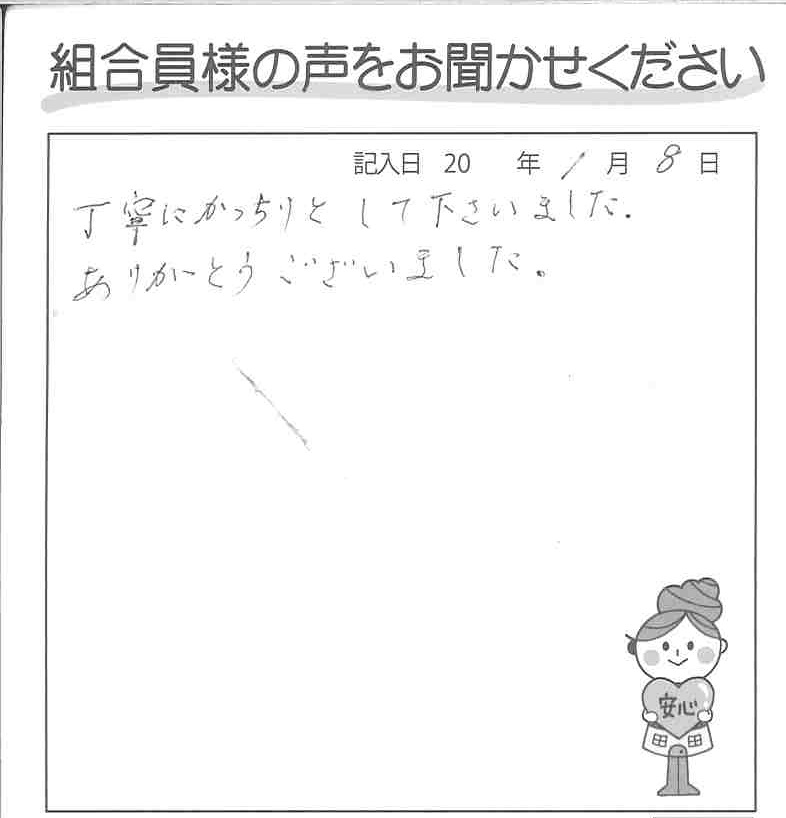 組合員様の声をお聞かせください
記入日 20 年 1月 8日
丁寧にかっちりと して下さいました.
ありがとうございました。
安心